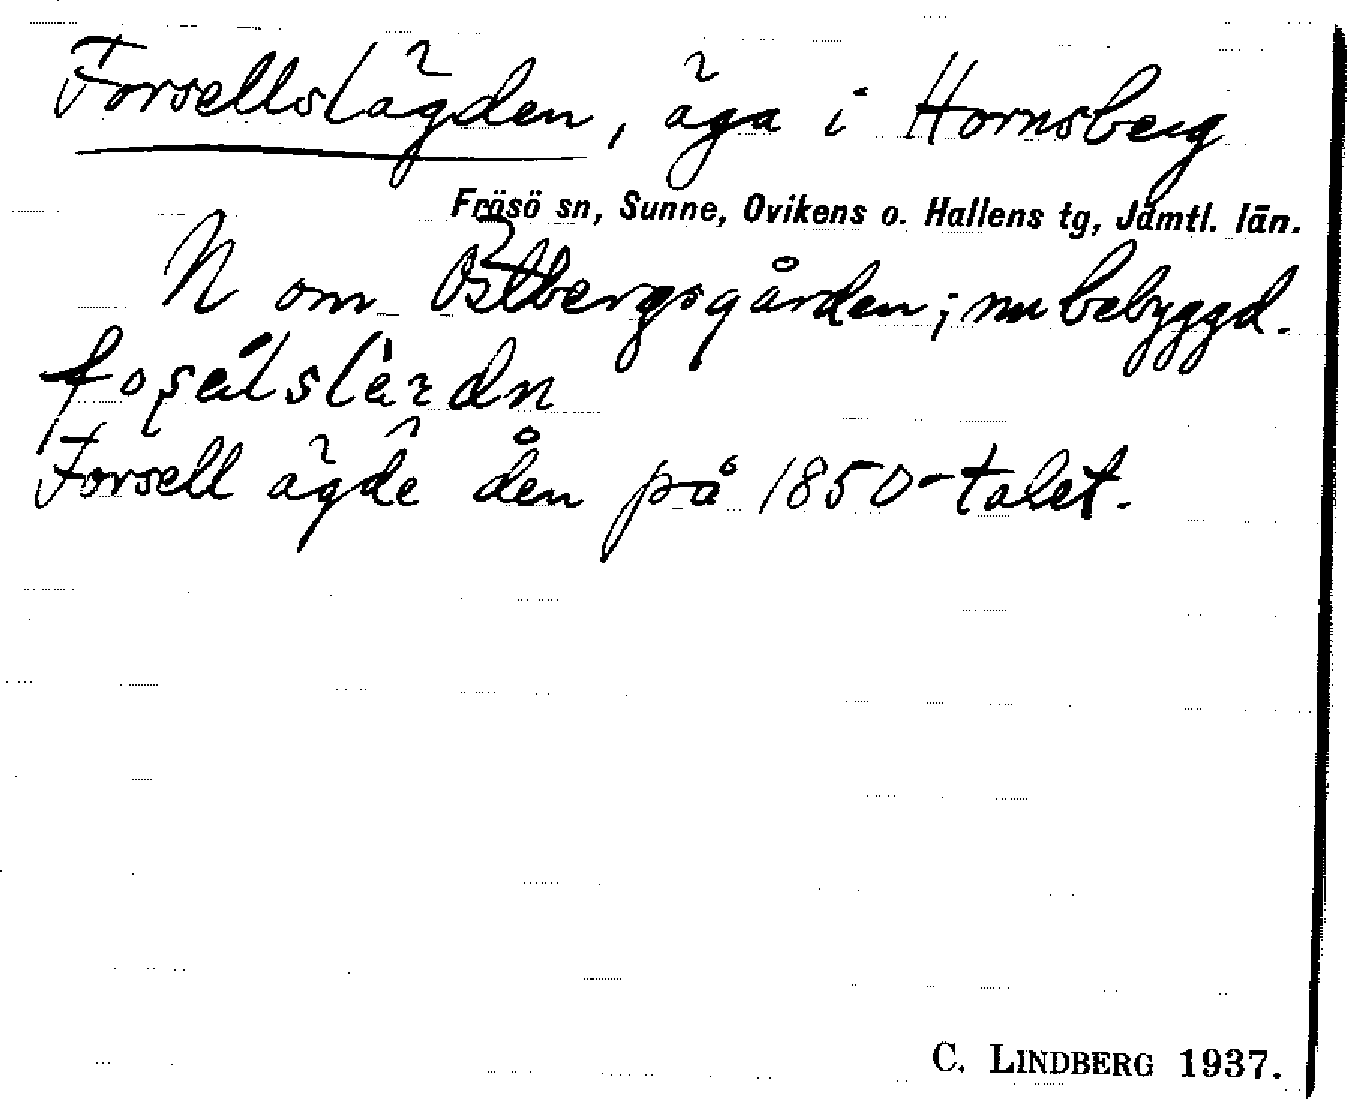 Forsellslägden, äga i Hornsberg
Frösö sn, Sunne, Ovikens o. Hallens tg, Jämtl. län.
N om Östbergsgården; nu bebyggd.
Forsell ägde den på 1850-talet.
C. LINDBERG 1937.